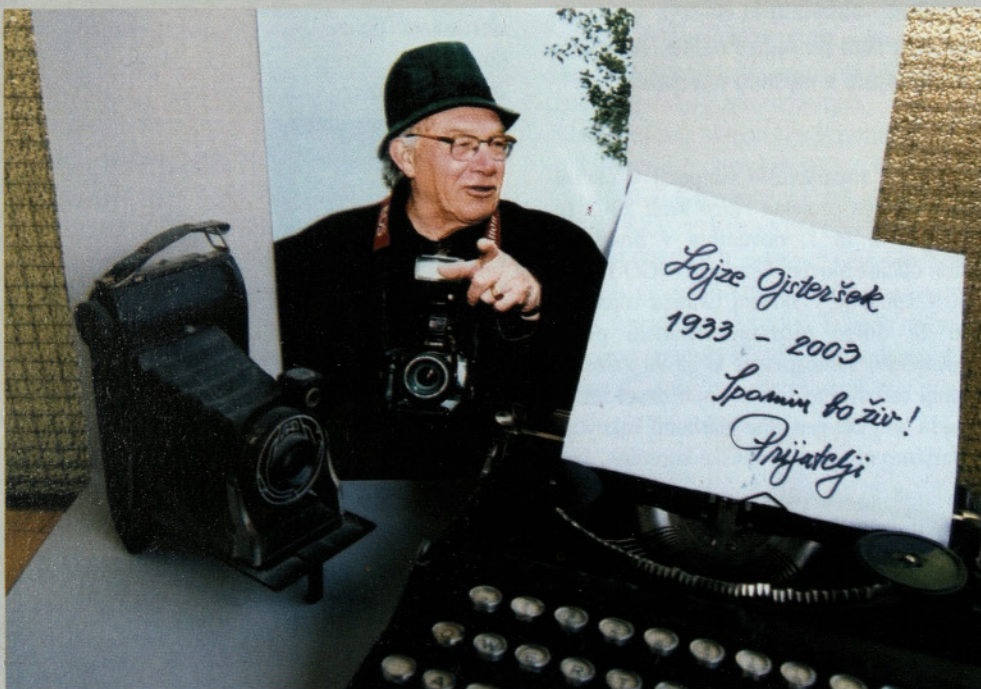 Lojze Ojsteršek
1933 - 2003
Spomin bo živ!
Prijatelji